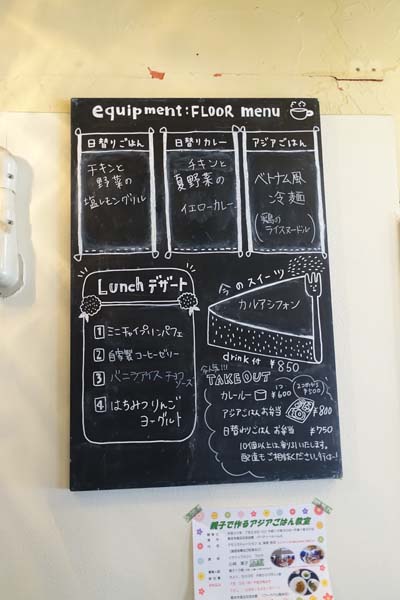 equipment:FLOOR menu
日替りごはん
チキンと
野菜の
塩レモングリル
日替りカレー
チキンと
夏野菜の
イエローカレー
アジアごはん
ベトナム風
冷麺
(鶏の
ライスヌードル)
Lunch デザート
1 ミニチャイプリンパフェ
2 自家製コーヒーゼリー
3 バニラアイス チョコ
ソース
4 はちみつりんご
ヨーグルト
今のスイーツ
カルアシフォン
drink付 ¥850
TAKE OUT
カレールー 1つ ¥600
アジアごはんお弁当 ¥800
日替わりごはん お弁当 ¥750
10個以上は割引いたします。
配達もご相談ください。
親子で作るアジアごはん教室